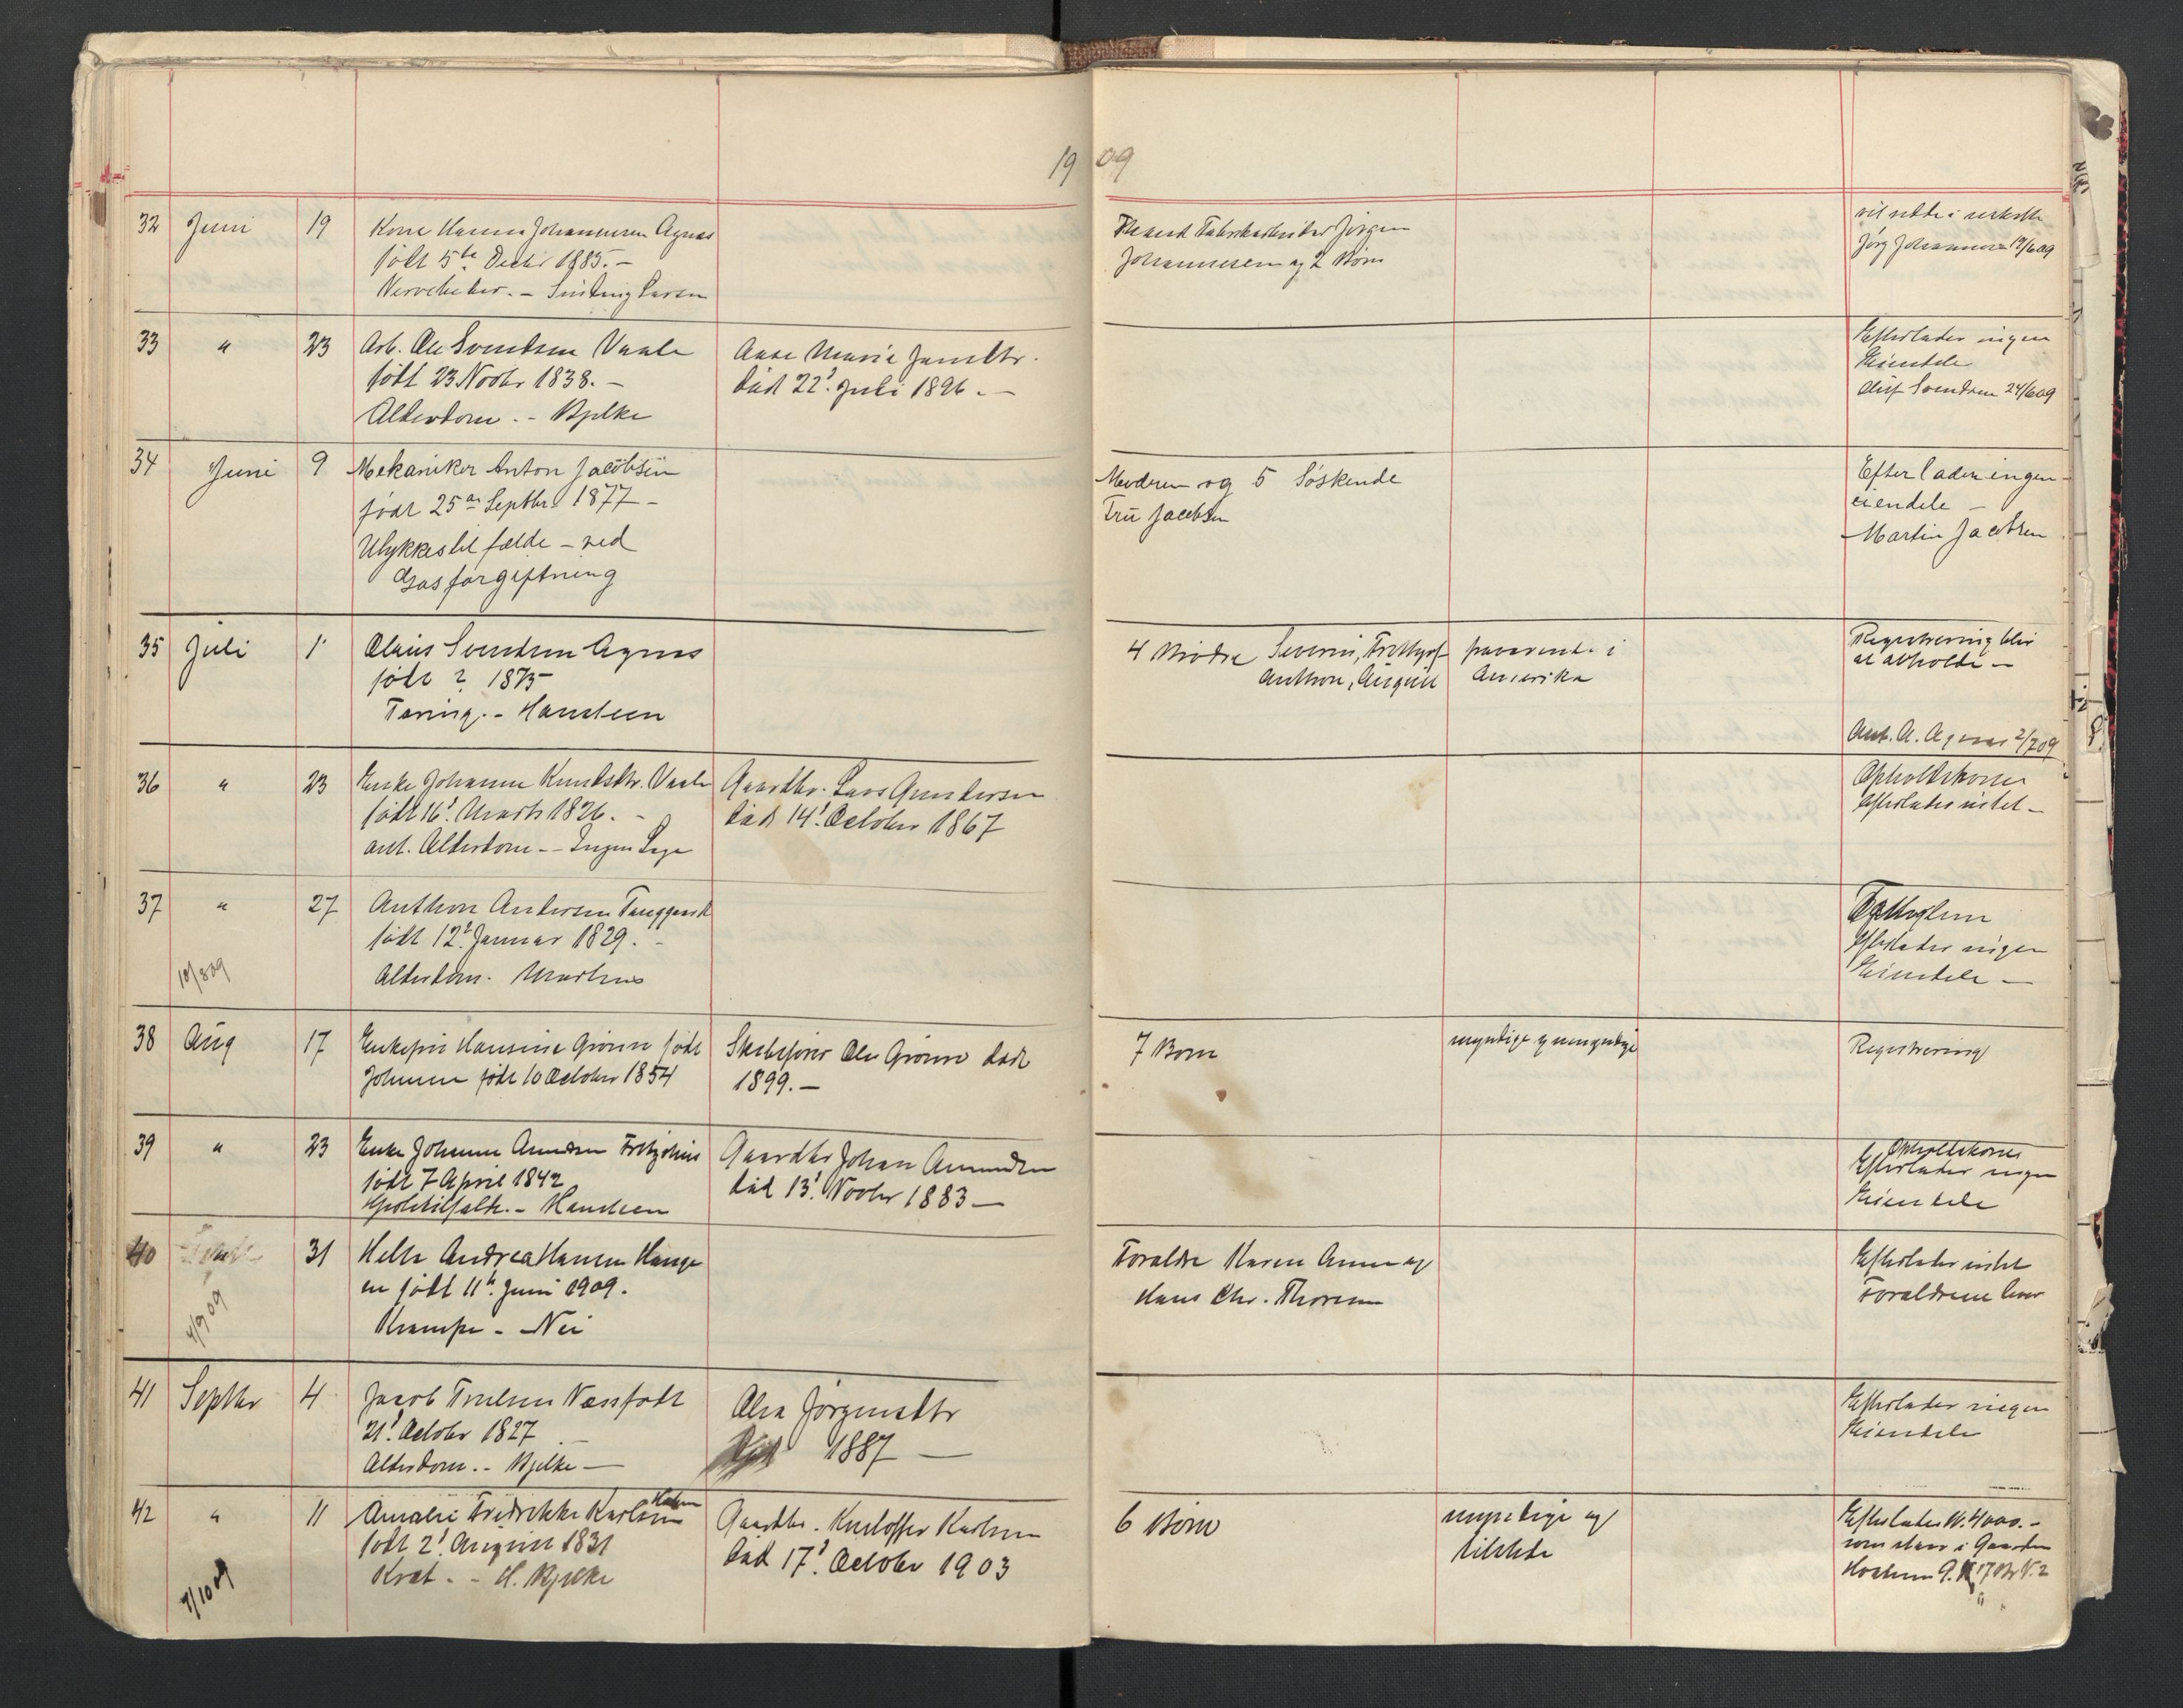 1909
32 Juni 19 Kone Hanna Johannesen Agnes
født 5te Decbr 1885. –
Nervefeber. –
Johannesen og 2 Børn
Jørg Johannesen 19/6 09
33 " 23 Arb. Ole Svendsen Vaale
født 23 Novbr 1838. –
Alderdom. – Bjelke
Aase Marie Jansdtr.
død 22' Juli 1896. –
Efterlader ingen
Eiendele
Svendsen 24/6 09
34 Juni 9 Mekaniker Anton Jacobsen
født 25de Septbr 1877 –
Ulykkestilfælde – ved
Gasforgiftning
Moderen og 5 Søskende
Fru Jacobsen
Efterlader ingen
eiendele –
Martin Jacobsen
35 Juli 1 Olaus Svendsen Agnes
født ? 1875
Tæring. – Handsteen
4 Brødre Severin,
Anthon, August
i
Amerika
Registrering blir
at afholde –
Ant. A. Agnes 2/7 09
36 " 23 Enke Johanne Knudsdtr. Vaale
født 16' Marts 1826. –
ant. Alderdom – – Ingen Læge
Gaardbr. Lars Gundersen
død 14' October 1867
Opholdskone
Efterlader intet –
37 " 27 Anthon Andersen
født 12' Januar 1829. –
Alderdom.
10/8 09
Efterlader ingen
Eiendele –
38 Aug 17 Enkefru Hansine Grønn født
Johnsen født 10 October 1854
Skibsfører Ole Grønn død
1899. –
7 Børn
myndige og umyndige
Registrering
39 " 23 Enke Johanne Amundsen
født 7 April 1842
– Handsteen
Gaardbr Johan Amundsen
død 13' Novbr 1883 –
Opholdskone
Efterlader ingen
Eiendele
40 31 Andrea Hansen Hauge
en født 11te Juni 1909.
Krampe – Nei
4/9 09
Foraldre Karen Anne og
Hans Chr. Thoresen
Efterlader intet
Foraldrene lever
41 Septbr 4 Jacob Truelsen Næss født
21' October 1827
Alderdom. – Bjelke –
Jørgensdtr
død 1887 –
Efterlader ingen
Eiendele
42 " 11 Amalie Fredrikke Karlsen
født 2' August 1831
Kræft. – H. Bjelke
7/10 09
Gaardbr. Kristoffer Karlsen
død 17' October 1903
6 Børn
myndige og
tilstede
Efterlader Kr. 4000. –
som staar i Gaarden